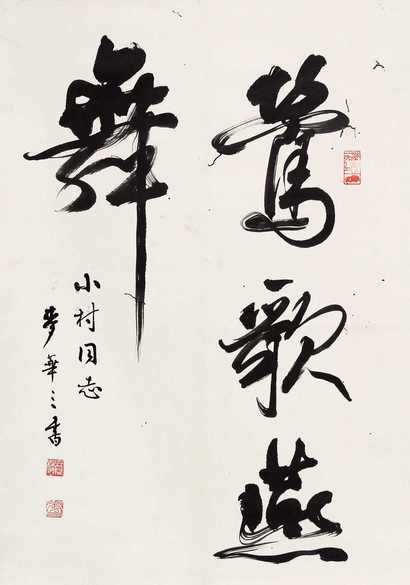 鶯歌燕
舞
小村同志
夢華三書